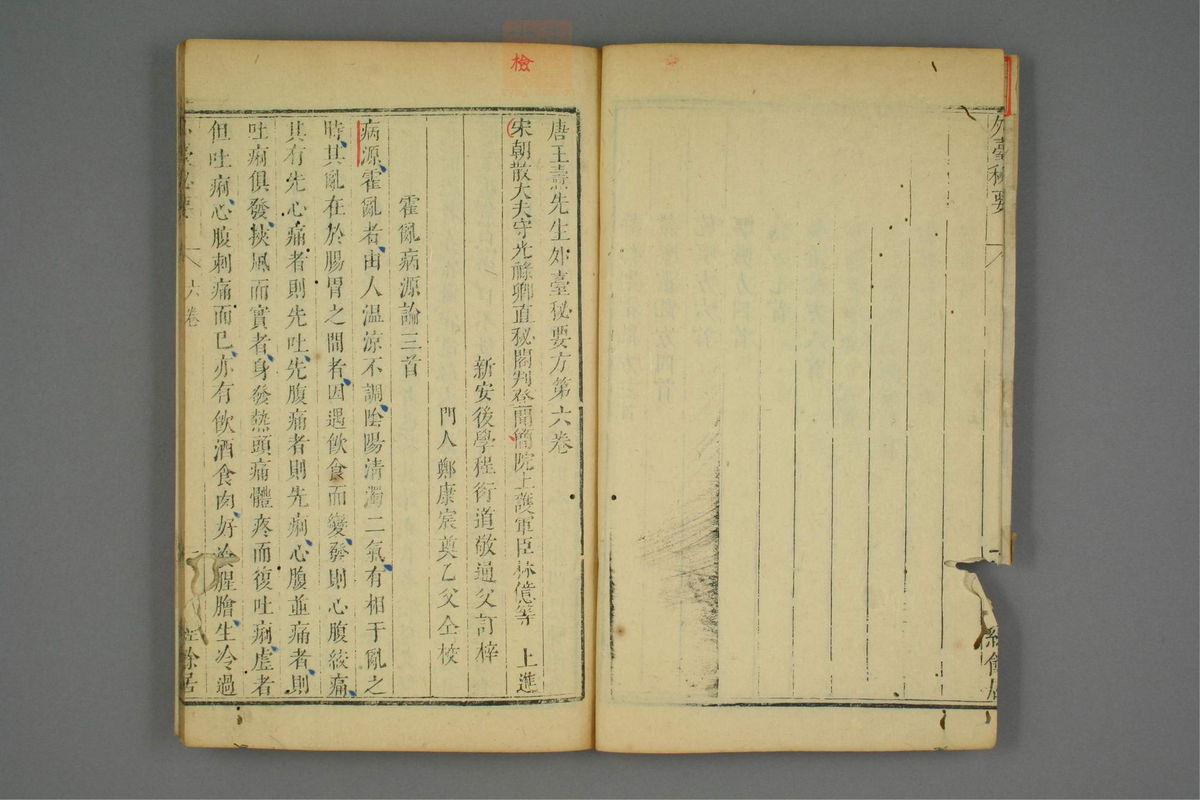 外臺秘要
經餘居
檢
唐王燾先生外臺秘要方第六卷
宋朝散大夫守光祿卿直秘閣判登聞簡院上護軍臣林億等 上進
新安後學程衍道敬通父訂梓
門人鄭康宸奠乙父仝校
霍亂病源論三首
病源霍亂者由人温涼不調陰陽清濁二氣有相干亂之
時其亂在於腸胃之間者因遇飲食而變發則心腹絞痛
其有先心痛者則先吐先腹痛者則先痢心腹並痛者則
吐痢俱發挾風而實者身發熱頭痛體疼而復吐痢虛者
但吐痢心腹刺痛而已亦有飲酒食肉好飡腥膾生冷過
外臺秘要 六卷 一 經餘居